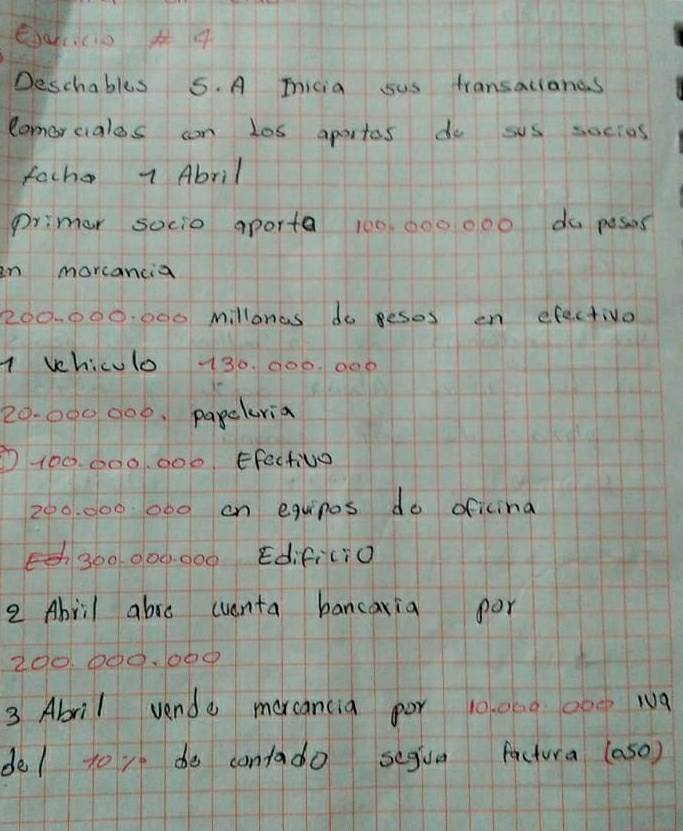 Ejercicio # 4
Deschables S.A Inicia sus transacianes
Comerciales con los aportes de sus socios
fecha 1 Abril
primer socio aporta 100.000.000 de pesos
en mercancia
200.000.000 Millones de pesos en efectivo
1 vehiculo 130.000.000
20.000 000. papeleria
100.000.000 Efectivo
200.000.000 en equipos de oficina
300.000.000 Edificio
2 Abril abre cuenta bancaria por
200.000.000
3 Abril vende mercancia por 10.000.000 IVA
del 10% de contado segun factura (050)